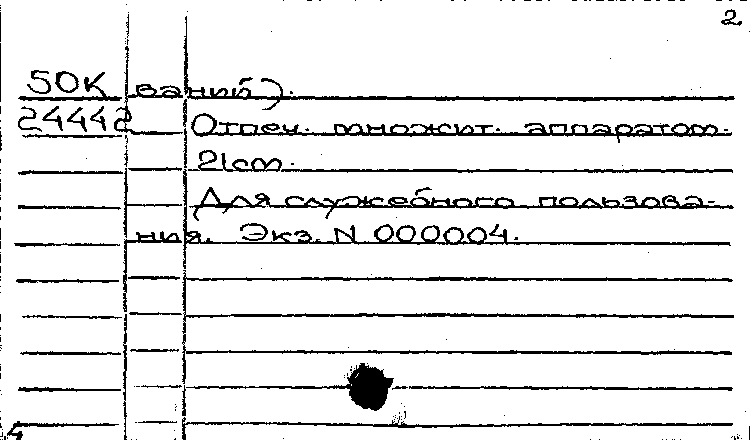 2.
50К ваний).
24442 Отпеч. множит. аппаратом.
21cm.
Для служебного пользова-
ния. Экз. N 000004.
4